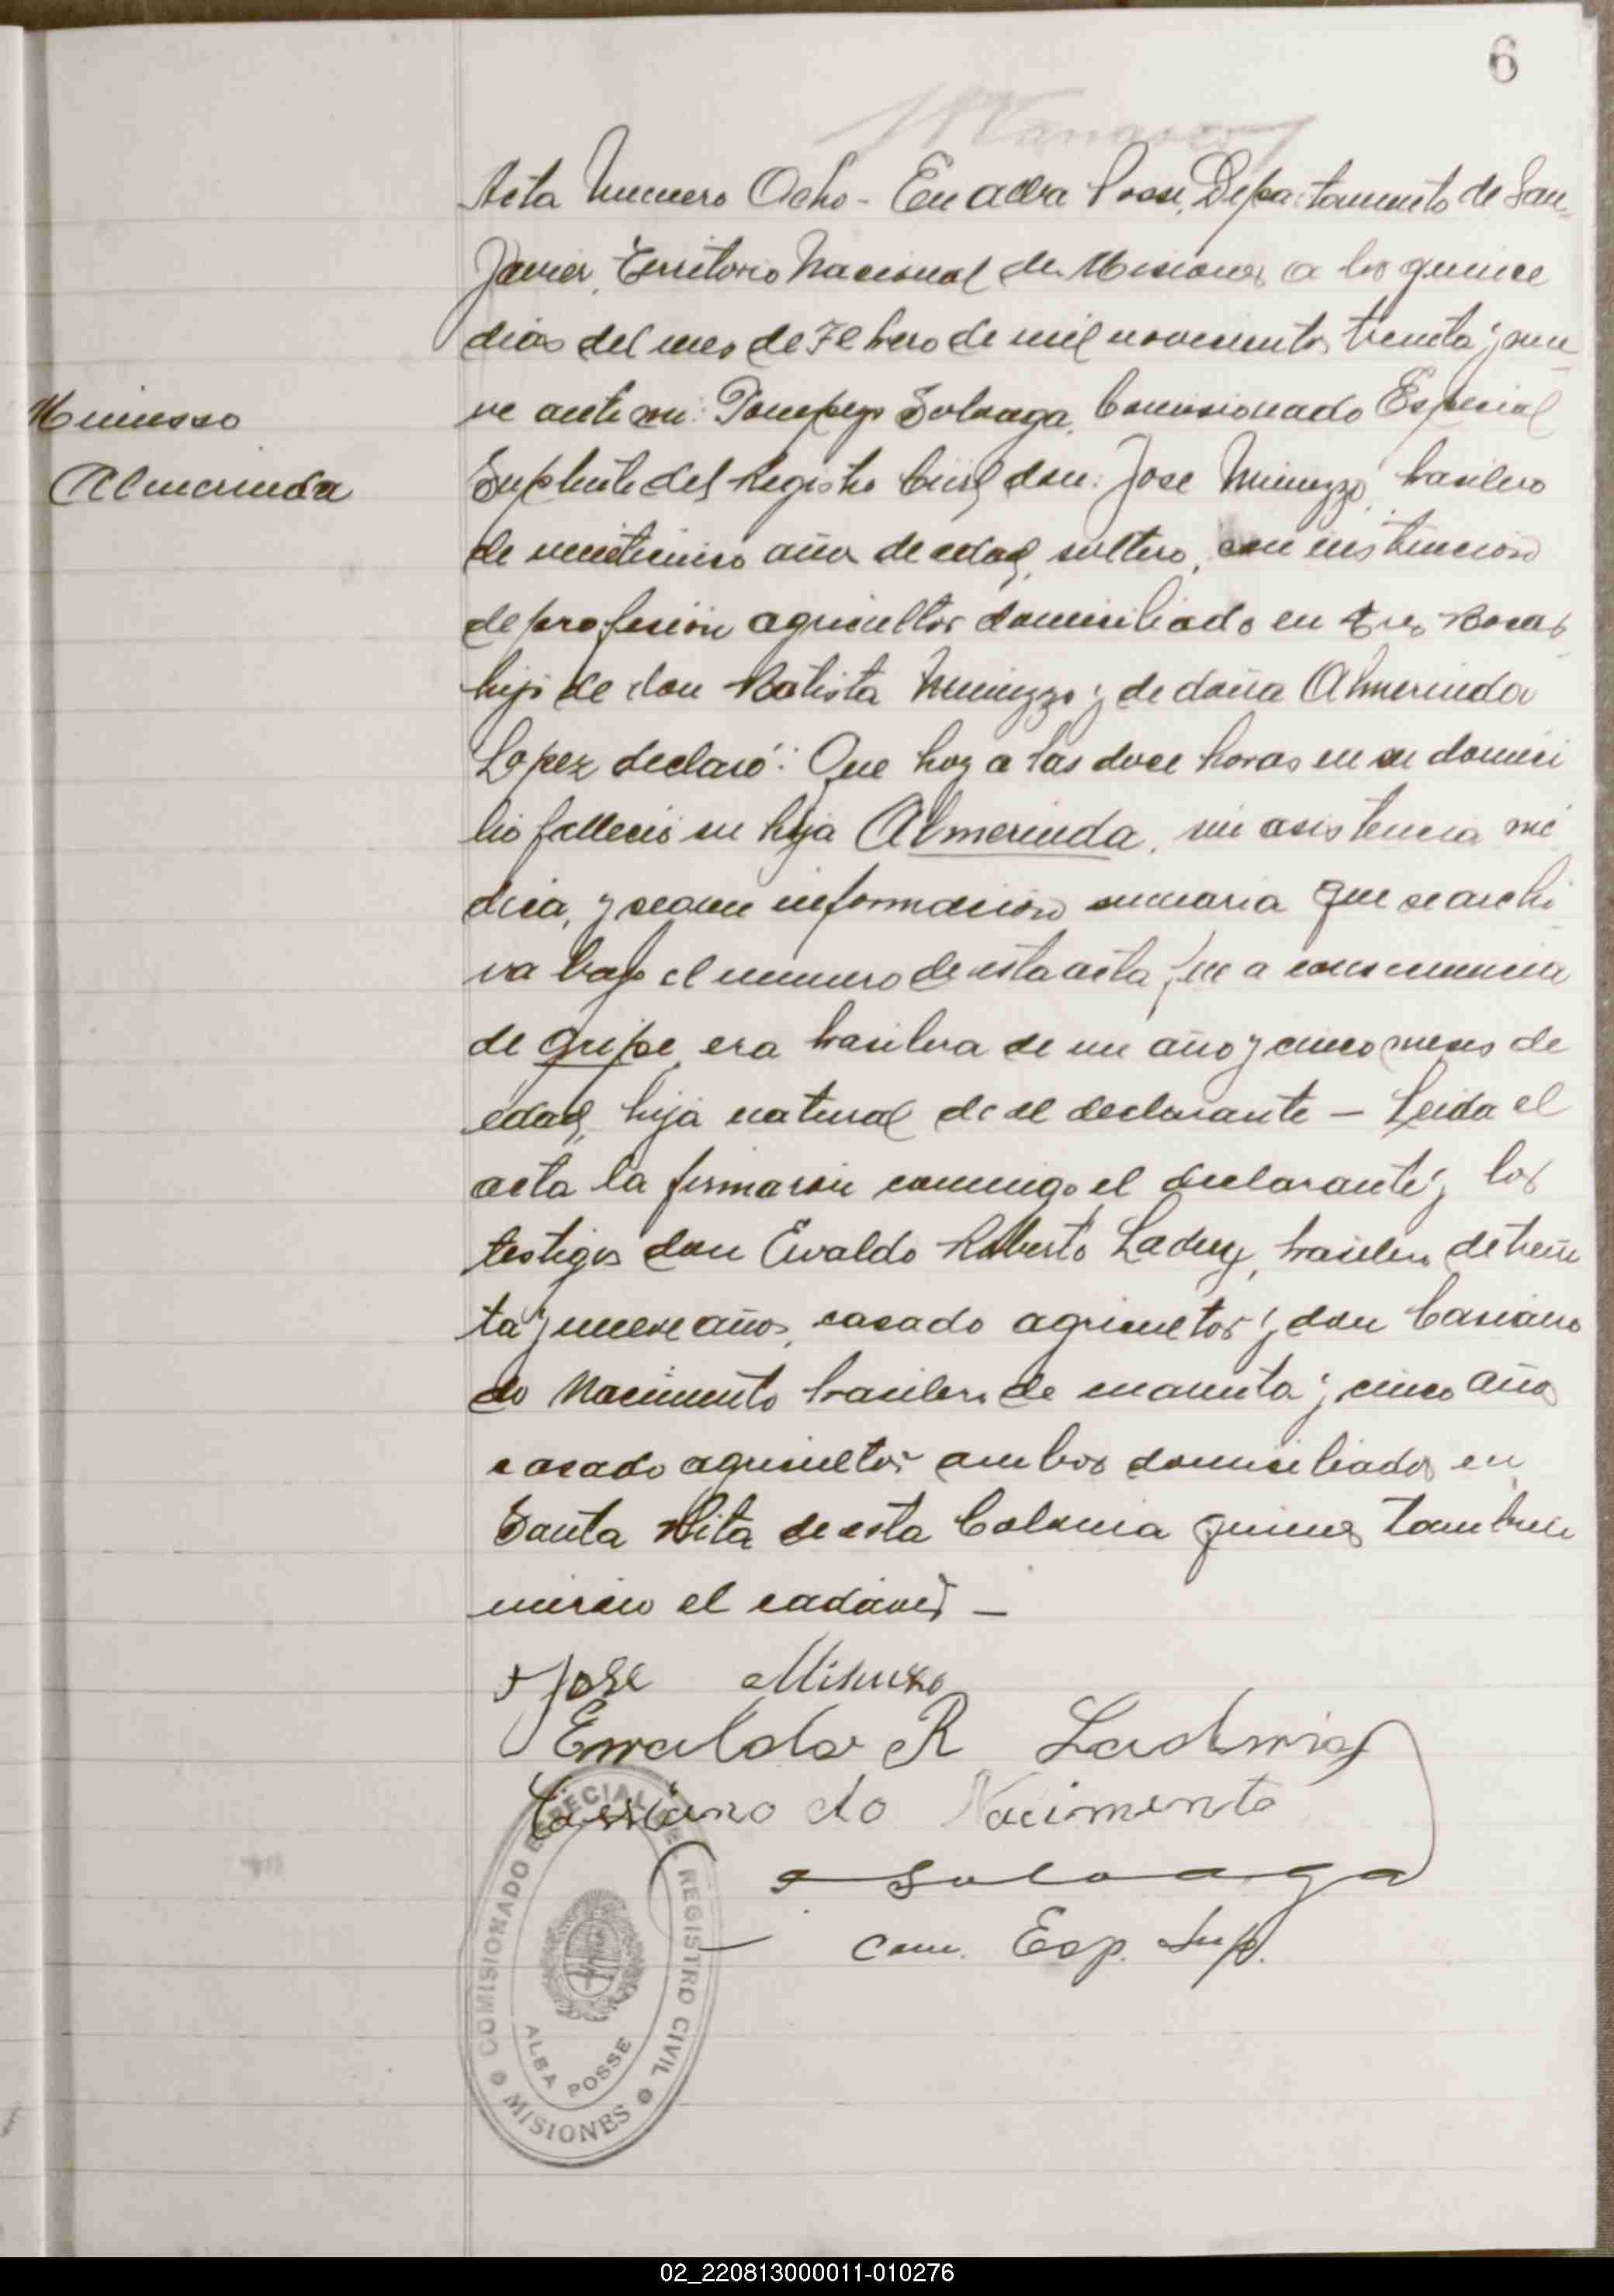 6
Acta Numero Ocho - En Alba Posse, Departamento de San
Javier, Territorio Nacional de Misiones, a los quince
dias del mes de Febrero de mil novecientos treinta y nue
ve ante mi: Pompeyo Soloaga, Comisionado Especial
Minusso
Almerinda
Suplente del Registro Civil, don: Jose Minuzzo, brasilero
de veinticinco años de edad, soltero, con instruccion
de profesión agricultor domiciliado en Tres Bocas
hijo de don Batista Minuzzo y de doña Almerinda
Lopez declaró: Que hoy a las doce horas en su domici
lio fallecio su hija Almerinda, sin asistencia mé
dica, y segun información sumaria que se archi
va bajo el numero de esta acta fue a consecuencia
de gripe, era brasilera de un año y cinco meses de
edad, hija natural de el declarante - Leida el
acta la firmaron conmigo, el declarante y los
testigos don Evaldo Roberto brasilero de trein
ta y nueve años, casado agricultor y don Casiano
do Nacimiento brasilero de y cinco años
casado agricultor ambos domiciliados en
Santa Rita de esta Colonia quienes tambien
vieron el cadáver -
Jose Minuzo
Ewaldo R Ludwig
Cassiano do Nacimento
Soloaga
Com. Esp. Sup.
COMISIONADO ESPECIAL DEL REGISTRO CIVIL
ALBA POSSE
MISIONES
02_220813000011-010276